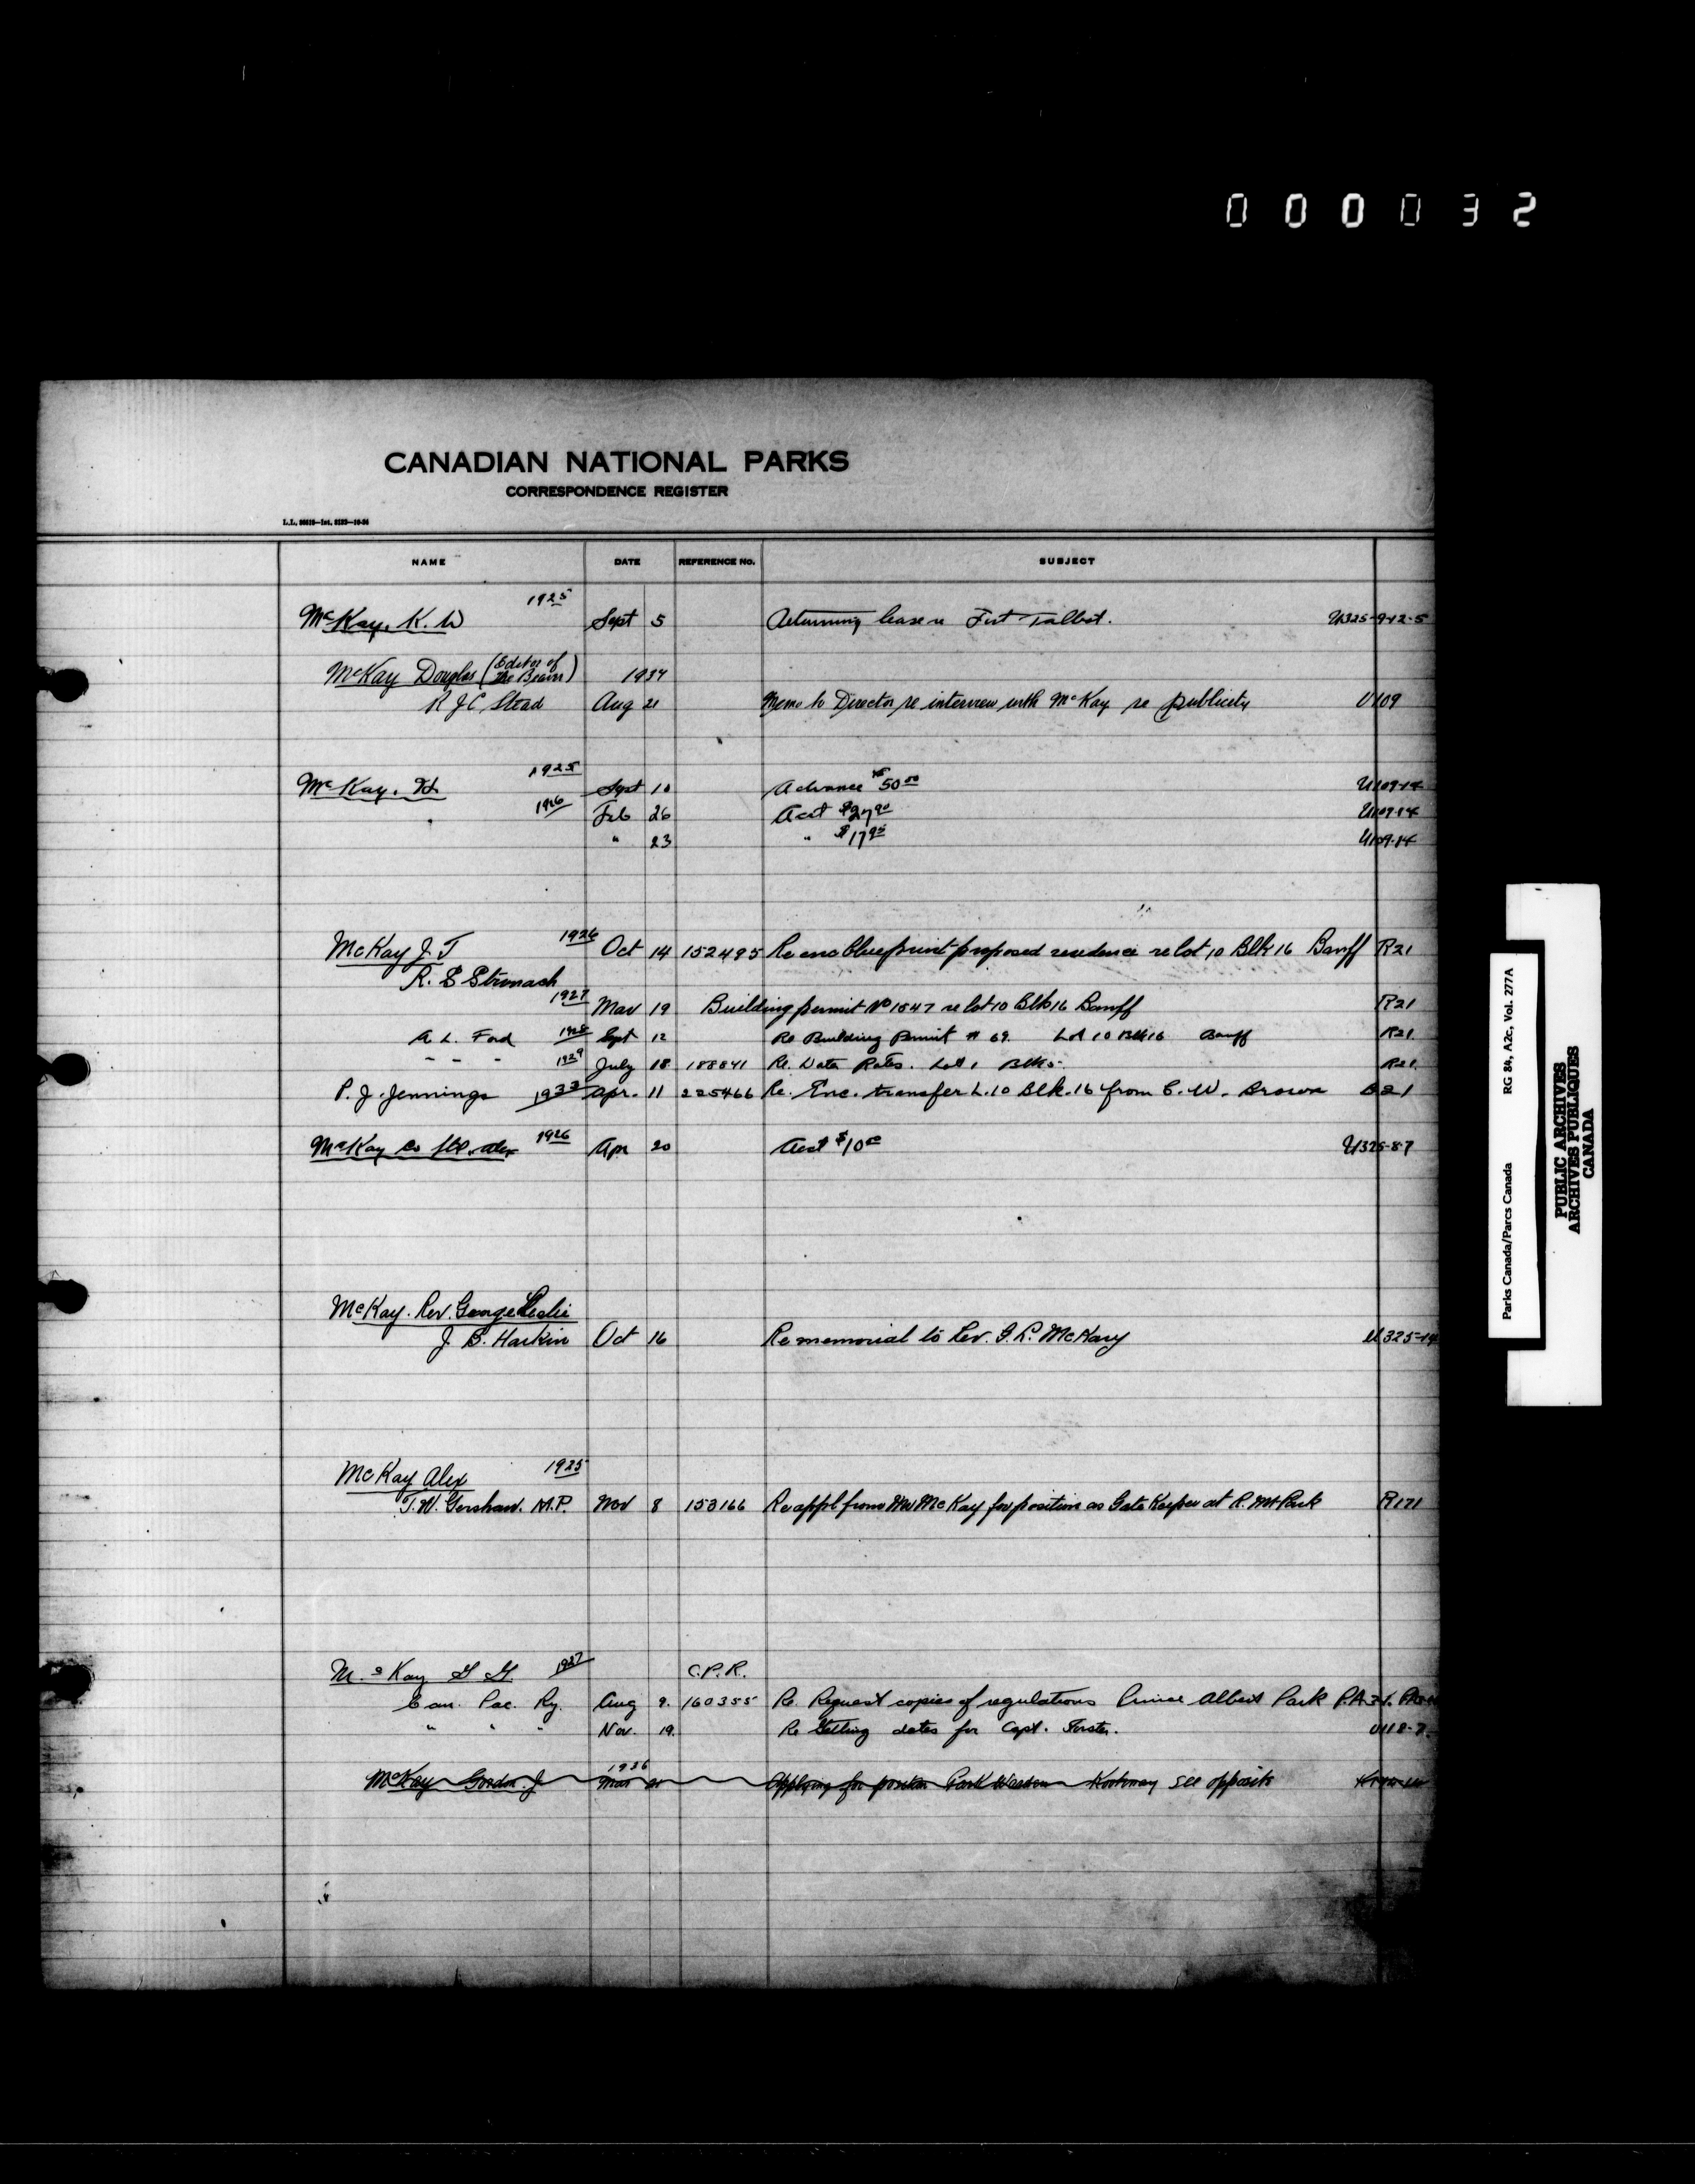 000032
CANADIAN NATIONAL PARKS
CORRESPONDENCE REGISTER
NAME DATE REFERENCE No. SUBJECT
McKay, K. W 1925 Sept 5 Returning lease re Fort Talbot. U325-9-12-5
McKay Douglas (Editor of The Beaver) 1934
R J C Stead Aug 21 Memo to Director re interview with McKay re publicity U109
McKay, H 1925 Sept 10 Advance $50.00 U109-14
1926 Feb 26 Acct $27.90 U109-14
" 23 " U109-14
McKay J. T 1926 Oct 14 152495 Re enc blueprint proposed residence re lot 10 Blk 16 Banff R21
R. S Stronach
1927 Mar 19 Building permit No 1547 re lot 10 Blk 16 Banff R21
A. L. Ford 1928 Sept 12 Re Building Permit # 69. Lot 10 Blk 16 Banff R21
" " " 1929 July 18 188841 Re. Lot 1 R21
P. J. Jennings 1933 Apr. 11 225466 Re. Enc. transfer L. 10 Blk. 16 from C. W. Brown B21
McKay Co Ltd. Alex 1926 Apr 20 Acct $10.00 U325-8-7
McKay. Rev. George Leslie
J. B. Harkin Oct 16 Re memorial to Rev. G. L. McKay U325-14
McKay Alex 1925
T. W. Gershaw. M.P. Nov 8 153166 Re appl from Mr McKay for position as Gate Keeper at R. Mt Park R171
McKay G G. 1927 C.P.R.
Can. Pac. Ry. Aug 9. 160355 Re. Request copies of regulations Prince Albert Park
" " " Nov. 19. Re Getting dates for Capt. U118-7
McKay Gordon J 1936 Mar Applying for position Park Warden Kootenay see opposite
Parks Canada/Parcs Canada RG 84, A2c, Vol. 277A
PUBLIC ARCHIVES
ARCHIVES PUBLIQUES
CANADA